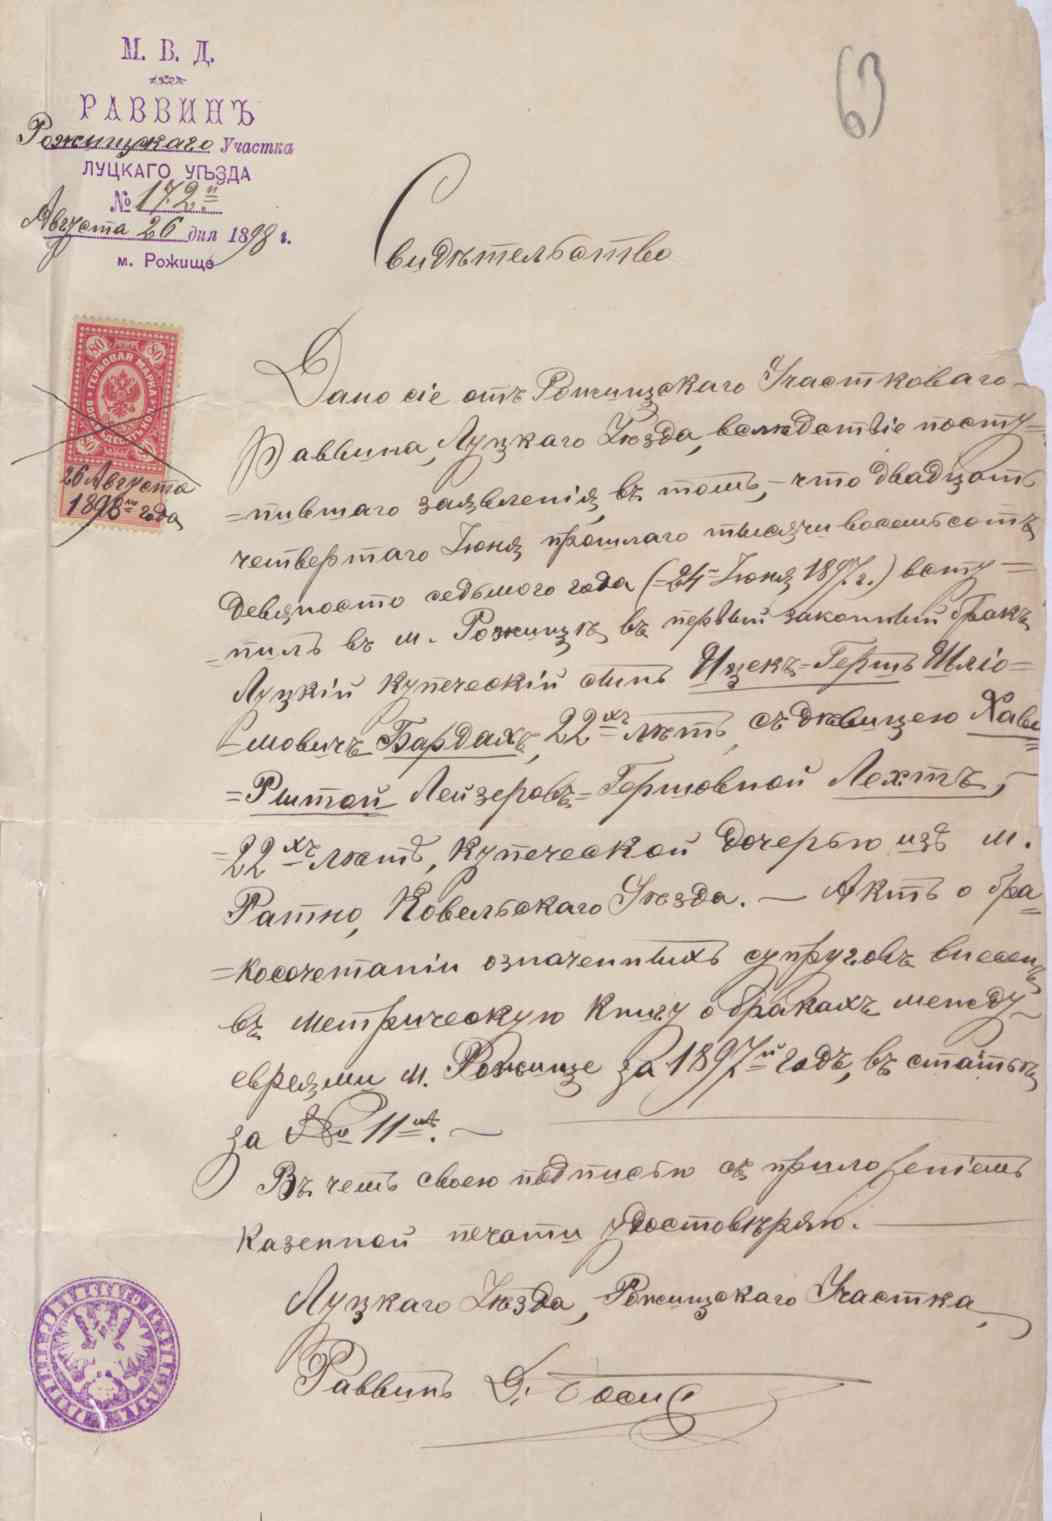 63
М. В. Д.
РАВВИНЪ
Рожищкаго Участка
ЛУЦКАГО УѢЗДА
№ 172й
Августа 26 дня 1898 г.
м. Рожище
Свидѣтельство
50 50
ГЕРБОВАЯ МАРКА
26 Августа
1898го года
Дано сіе отъ Рожищскаго Участковаго
Раввина, Луцкаго Уѣзда, вслѣдствіе посту=
=пившаго заявленія, въ томъ, - что двадцать
четвертаго Іюня прошлаго тысяча восемьсотъ
девяносто седьмого года (=24= Іюня 1897 г.) всту=
=пилъ въ м. Рожищѣ въ первый законный бракъ
Луцкій купеческій сынъ Ицекъ=Гершъ Шліо=
=мовичъ Бардахъ, 22хъ лѣтъ, съ дѣвицею Хавс
=Рытой Лейзеровъ=Гершовной Лехтъ, -
=22хъ лѣтъ, купеческой дочерью изъ м.
Ратно, Ковельскаго Уѣзда. — Актъ о бра=
=косочетаніи означенныхъ супруговъ внесенъ
въ метрическую книгу о бракахъ между
евреями м. Рожище за 1897й годъ, въ статьѣ
за № 11мъ. —
Въ чемъ своею подписью съ приложеніемъ
казенной печати удостовѣряю. —
Луцкаго Уѣзда, Рожищскаго Участка,
Раввинъ